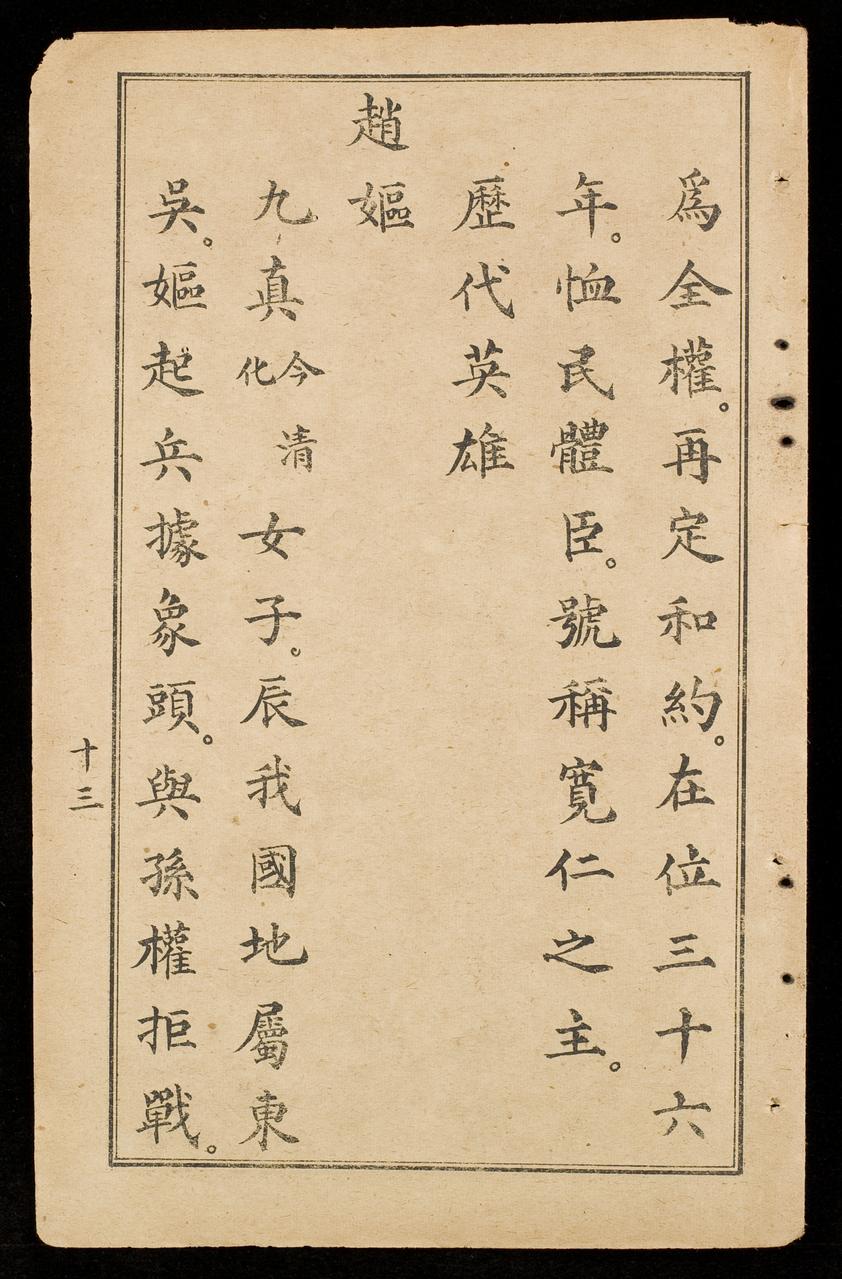 爲全權。再定和約。在位三十六
年。恤民體臣。號稱寬仁之主。
歷代英雄
趙嫗
九真今清化女子。辰我國地屬東
吳。嫗起兵據象頭。與孫權拒戰。
十三